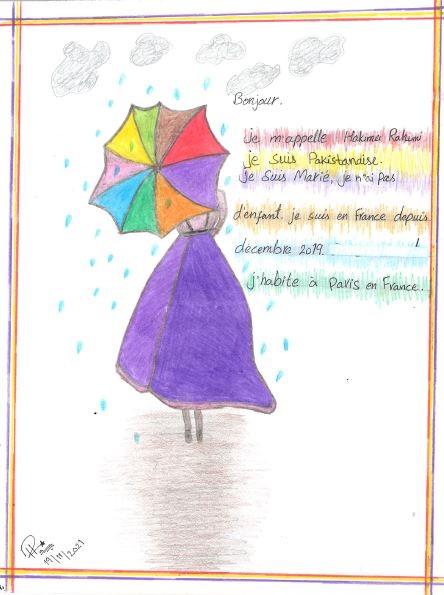 Bonjour.
je m'appelle Hakimei Rahimi
je suis Pakistandise.
je suis Marié, je n'ai pas
d'enfant, je suis en France depuis
décembre 2019.
j'habite à Paris en France.
19/11/2021